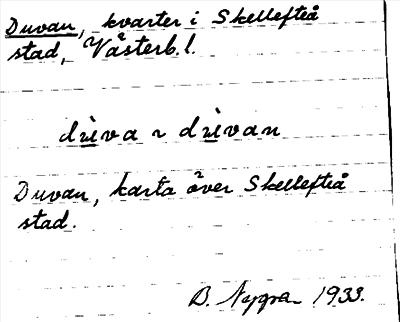 Duvan, kvarter i Skellefteå
stad, Västerb.l.
duva ~ duvan
Duvan, karta över Skellefteå
stad.
B. 1933.